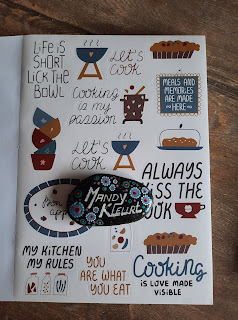 LiFE iS
SHORT
LiCK THE
BOWL
Let's
Cook
MEALS AND
MEMORIES
ARE MADE
HERE
Cooking
is my
passion
Let's
Cook
ALWAYS
THE
MANDY
MY KiTCHEN
MY RULES
YOU
ARE WHAT
YOU EAT
Cooking
iS LOVE MADE
ViSiBLE